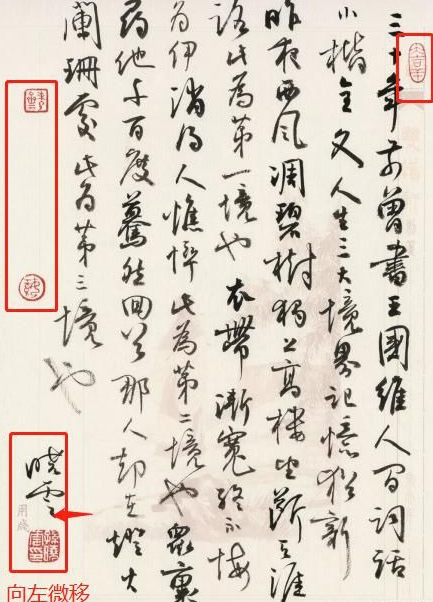 三十年前曾書王國維人間詞話
小楷全文人生三大境界記憶猶新
昨夜西風凋碧樹獨上高樓望斷天涯
路此為第一境也衣帶漸寬終不悔
為伊消得人憔悴此為第二境也眾裏
尋他千百度驀然回首那人却在燈火
闌珊處此為第三境也
曉雲
向左微移